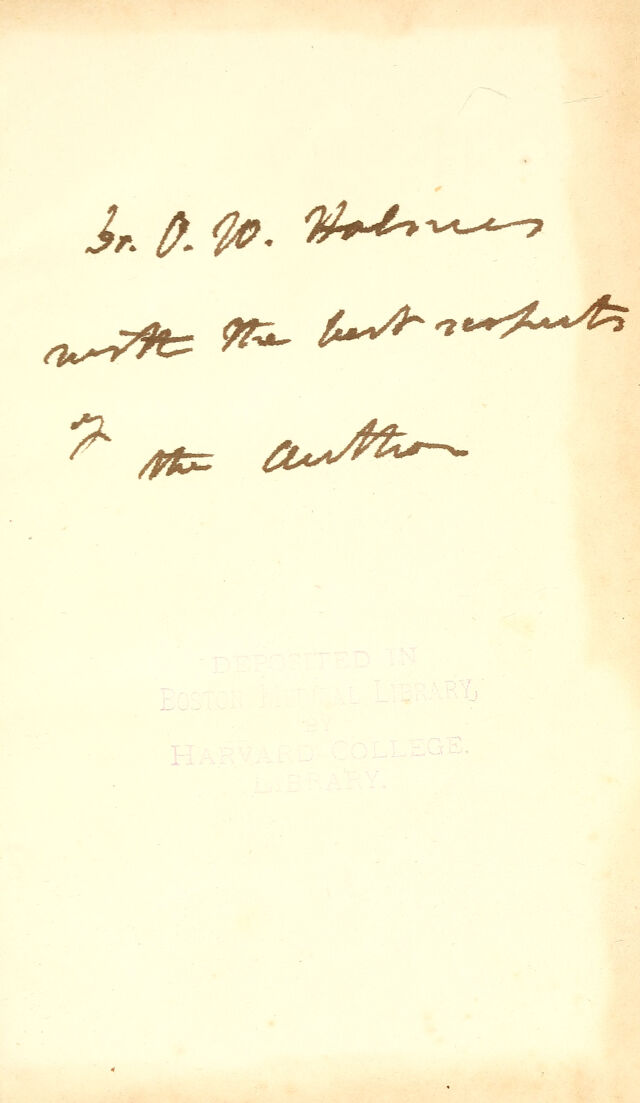 Dr. O. W. Holmes
with the best respects
of the author
DEPOSITED IN
BOSTON MEDICAL LIBRARY,
BY
HARVARD COLLEGE
LIBRARY.